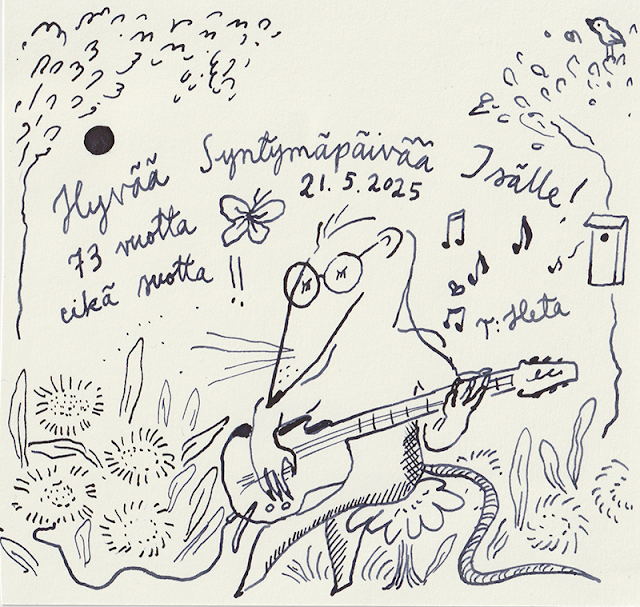 Hyvää Syntymäpäivää Isälle!
21.5.2025
73 vuotta
eikä suotta !!
T: Heta